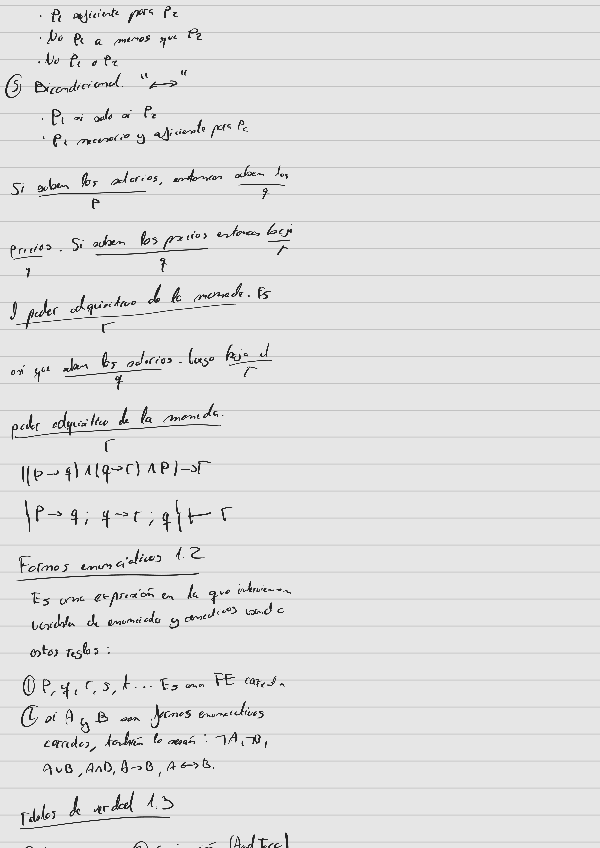 · P₁ suficiente para P₂
· No P₁ a menos que P₂
· No P₁ o P₂
⑤ Bicondicional "↔"
· P₁ si solo si P₂
· P₁ necesario y suficiente para P₂
Si suben los salarios, entonces suben los
p q
precios. Si suben los precios entonces baja
q q r
l poder adquisitivo de la moneda. Es
r
así que suben los salarios. Luego baja el
q r
poder adquisitivo de la moneda.
r
((p→q)∧(q→r)∧p)→r
{p→q; q→r; q}⊢ r
Formas enunciativas 1.2
Es una expresión en la que intervienen
variables de enunciado y conectivos usando
estas reglas:
① P, q, r, s, t... Es una FE
② si A y B son formas enunciativas
correctas, también lo serán: ¬A, ¬B,
A∪B, A∧B, A→B, A↔B.
Tablas de verdad 1.3